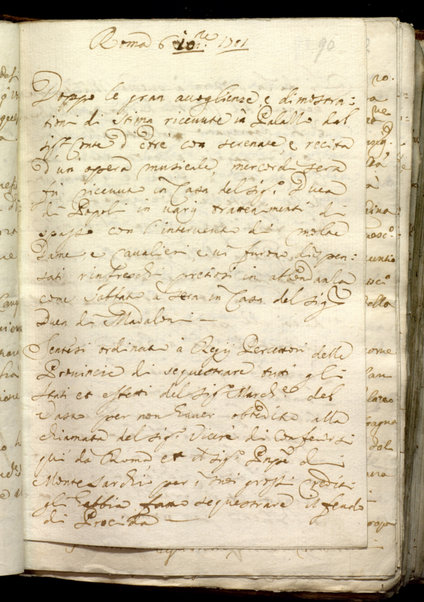 Roma 6 10re. 1701
90
Doppo le gran accoglienze, e dimostra-
tioni di stima riceuute in Palazzo dal
Sigr. Conte d'Etré con serenate, e recita
d'un opera musicale, mercordì sera
fù riceuuto in Casa del Sigr. Duca
di Popoli in varij trattenimenti di
spasso con l'interuento di molte
Dame e Caualieri, e ui furono dispen-
sati rinfreschi pretiosi in abondanza
come Sabbato à sera in Casa del Sigr.
Duca di Madaloni —
Sentesi ordinato à Regij Percettori delle
Prouincie di sequestrare tutti gli
stati et effetti del Sigr. Marchese del
Vasto per non hauer obedito alla
chiamata del Sigr. Vicerè di conferirsi
qui da Roma et il Sigr. Prnpe. di
Monte Sarchio per i suoi grossi crediti
gli habbia fatto sequestrare il feudo
di Procida —